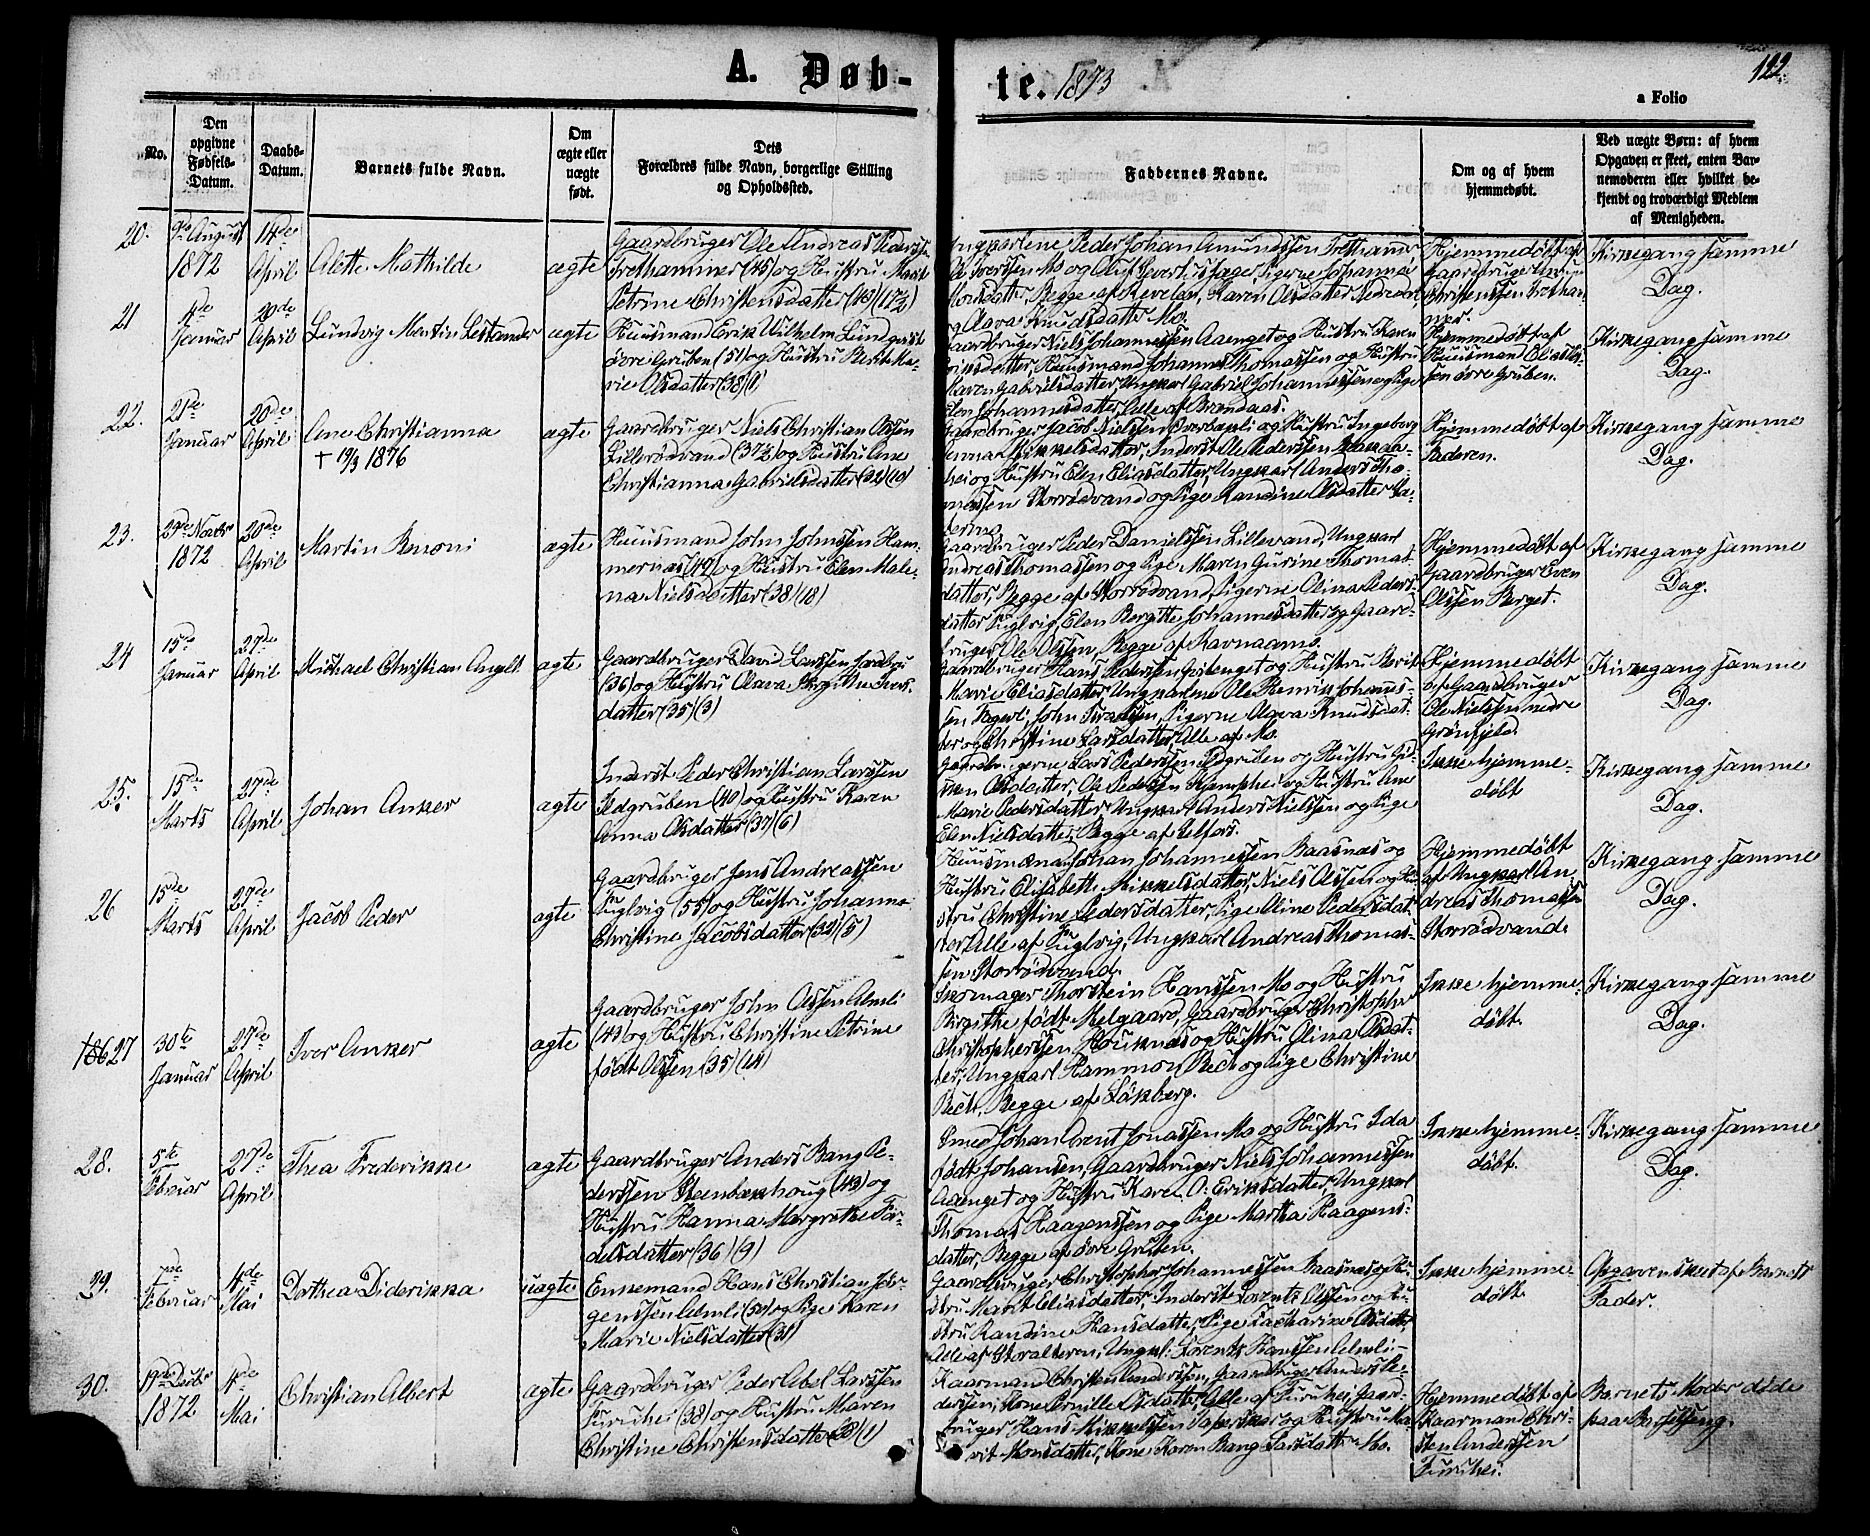 A. Døb-
te. 1873
122
a Folio
No.
Den opgivne Fødsels-Datum.
Daabs-Datum.
Barnets fulde Navn.
Om ægte eller uægte født.
Dets
Forældres fulde Navn, borgerlige Stilling
og Opholdssted.
Faddernes Navne.
Om og af hvem
hjemmedøbt.
Ved uægte Børn: af hvem
Opgaven er skeet, enten Bar-
nemoderen eller hvilket be-
kjendt og troværdigt Medlem
af Menigheden.
20.
August 1872
14de April
Alette Mathilde
ægte
Gaardbruger Ole Andreas Peders.
Trethammer (45) og Hustru Marit
Petrine Christensdatter (43) (17½)
Ungkarlene Peder Johan Amundssen Trethamer
Hjemmedøbt af
Gaardbruger
Christenssen Tretham
mer.
Kirkegang samme
Dag.
21
4de Januar
20de April
Lundvig Martin
ægte
Huusmand Erik Wilhelm Lundqvist
øvre Gruben (51) og Hustru Marit Ma-
rie Olsdatter (38)
Gaardbruger Niels Johannessen Aaenget og Hustru Karen
Eriksdatter, Huusmand Johannes Thomassen og Hustru
Maren Gabrielsdatter, Ungkarl Gabriel Johannessen og Pige
Elen Johannesdatter, Alle af Brændaas.
Hjemmedøbt af
Huusmand Elias
sen øvre Gruben.
Kirkegang samme
Dag.
22.
21de Januar
20de April
Ane Christianna
† 19/3 1876
ægte
Gaardbruger Niels Christian Olssen
Lillerødvand (37½) og Hustru Ane
Christianna Gabrielsdatter (32) (10)
Gaardbruger Jacob Nielssen Overbækli og Hustru Ingeborg
Anna Mikkelsdatter, Inderst Ole Pederssen
hei og Hustru Elen Eliasdatter, Ungkarl Anders Tho-
massen Storrødvand og Pige Randine Olsdatter
Hjemmedøbt af
Faderen.
Kirkegang samme
Dag.
23.
29de Novbr 1872
20de April
Martin Benoni
ægte
Huusmand John Johnssen Ham-
mernæs (49) og Hustru Elen Male-
na Nielsdatter (38) (18)
Gaardbruger Peder Danielssen Lillevand, Ungkarl
Andreas Thomassen og Pige Maren Gurine Thomas-
datter, Begge af Storrødvand, Pigerne Olina Peders-
datter Fuglvig, Elen Bergitte Johannesdatter og Gaard-
bruger Ole Olssen, Begge af Ravnaamo.
Hjemmedøbt af
Gaardbruger Even
Olssen Berget.
Kirkegang samme
Dag.
24
15de Januar
27de April
Mikkael Christian Angel
ægte
Gaardbruger David Larssen
(36) og Hustru Olava Birgitte Ivers-
datter (35) (3)
Gaardbruger Hans Pederssen og Hustru Berit
Marie Eliasdatter, Ungkarlene Ole Henrik Johans-
sen Fagerli, John Tiralssen, Pigerne Olava Knudsdat-
ter og Christine Larsdatter, Alle af Mo.
Hjemmedøbt
af Gaardbruger
Ole Nielssen nedre
Grønfjeld.
Kirkegang samme
Dag.
25.
15de Marts
27de April
Johan Anker
ægte
Inderst Peder Christian Larssen
Ildgruben (40) og Hustru Karen
Anna Olsdatter (37) (6)
Gaardbrugerne Lars Pederssen Ildgruben og Hustru
Olsdatter, Ole Pederssen Kjempehei og Hustru Ane
Marie Pedersdatter, Ungkarl Anders Nielssen og Pige
Elen Nielsdatter, Begge af Selfors.
Ikke hjemme-
døbt
Kirkegang samme
Dag.
26
15de Marts
27de April
Jacob Peder
ægte
Gaardbruger Jens Andreassen
Fuglvig (55) og Hustru Johanna
Christine Jacobsdatter (32) (5)
Huusmændene Johan Johannessen Baasnæs og
Hustru Elisabeth Mikkelsdatter, Niels Olssen og Hu-
stru Christine Pedersdatter, Pige Oline Pedersdat-
ter Alle af Fuglvig, Ungkarl Andreas Thomas-
sen Storrødvand.
Hjemmedøbt
af Ungkarl An-
dreas Thomassen
Storrødvand.
Kirkegang samme
Dag.
27
30te Januar
27de April
Iver Anker
ægte
Gaardbruger John Olssen Almli
(43) og Hustru Christine Petrine
født Olssen (35) (14)
Skomager Thorstein Hanssen Mo og Hustru
Birgithe født Melgaard, Gaardbruger Christopher
Christopherssen Houknæs og Hustru Olina Olsdat-
ter, Ungkarl Hammon Bech og Pige Christine
Bech, Begge af Løkberg.
Ikke hjemme-
døbt.
Kirkegang samme
Dag.
28.
5te Februar
27de April
Thea Frederikke
ægte
Gaardbruger Anders Bang Pe-
derssen Steenbækhoug (43) og
Hustru Hanna Margrethe Tør-
delsdatter (36) (9)
Smed Johan Arent Jonassen Mo og Hustru Ida
født Johansen, Gaardbruger Niels Johannessen
Aaenget og Hustru Karen O. Eriksdatter, Ungkarl
Thomas Haagenssen og Pige Martha Haagens-
datter, Begge af øvre Gruben.
Ikke hjemme-
døbt.
Kirkegang samme
Dag.
29.
7de Februar
4de Mai
Dorthea Diderikka
uægte
Enkemand Hans Christian Jør-
genssen Almli (50) og Pige Karen
Marie Nielsdatter (31)
Gaardbruger Christopher Johannessen Braanæs og Hu-
stru Marit Eliasdatter, Inderst Lorents Olssen og Hu-
stru Randine Hansdatter, Pige Catharine Olsdatter,
Alle af Storalteren, Ungkl: Lorents Hanssen Almli.
Ikke hjemme
døbt.
Opgaven skeet af Barnets
Fader.
30.
19de Decbr 1872
4de Mai
Christian Albert
ægte
Gaardbruger Peder Abel Larssen
Furuhei (38) og Hustru Maren
Christine Christensdatter (38) (1)
Kaarmand Christen Anderssen, Gaardbruger Anders Pe-
derssen, Kone Pernille Olsdatter, Alle af Furuhei, Gaard-
bruger Hans Mikkelssen og Hustru Ma-
rit Monsdatter, Kone Karen Bang Larsdatter Mo.
Hjemmedøbt af
Kaarman Chri-
sten Anderssen
Furuhei.
Barnets Moder døde
paa Barselseng.